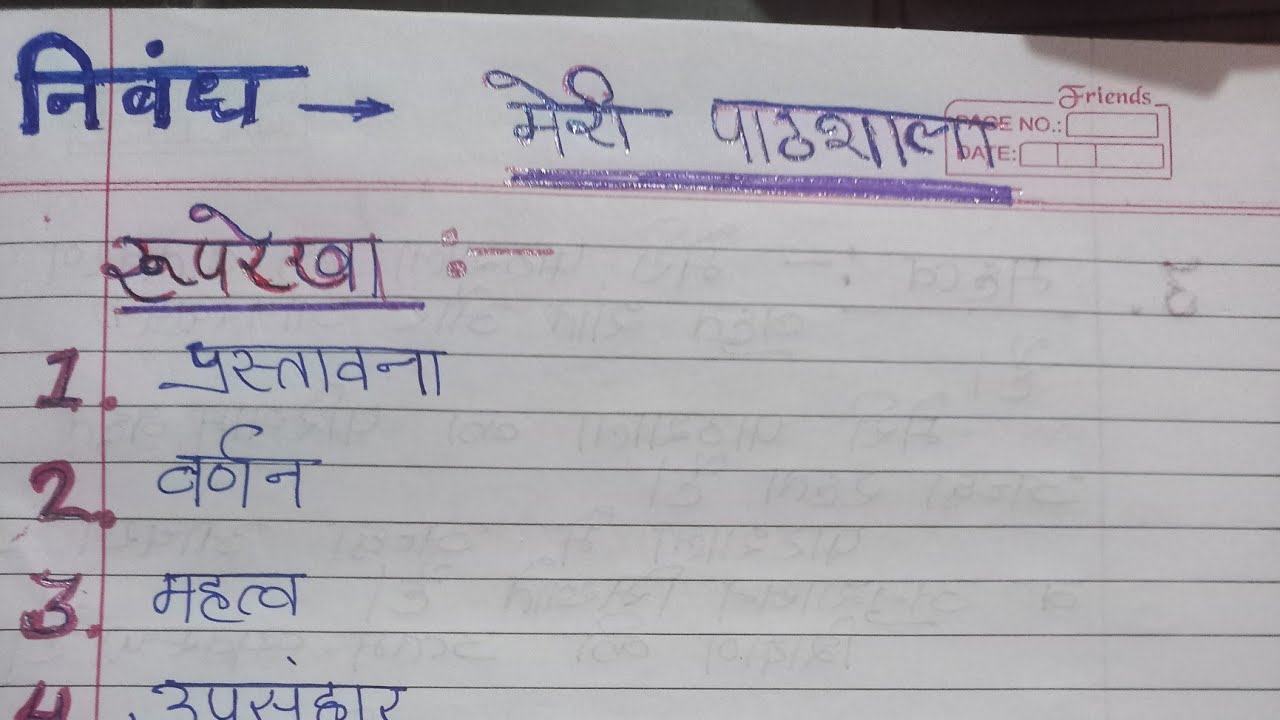 निबंध → मेरी पाठशाला
Friends
PAGE NO.:
DATE:
रूपरेखा :-
1. प्रस्तावना
2. वर्णन
3. महत्व
4. उपसंहार